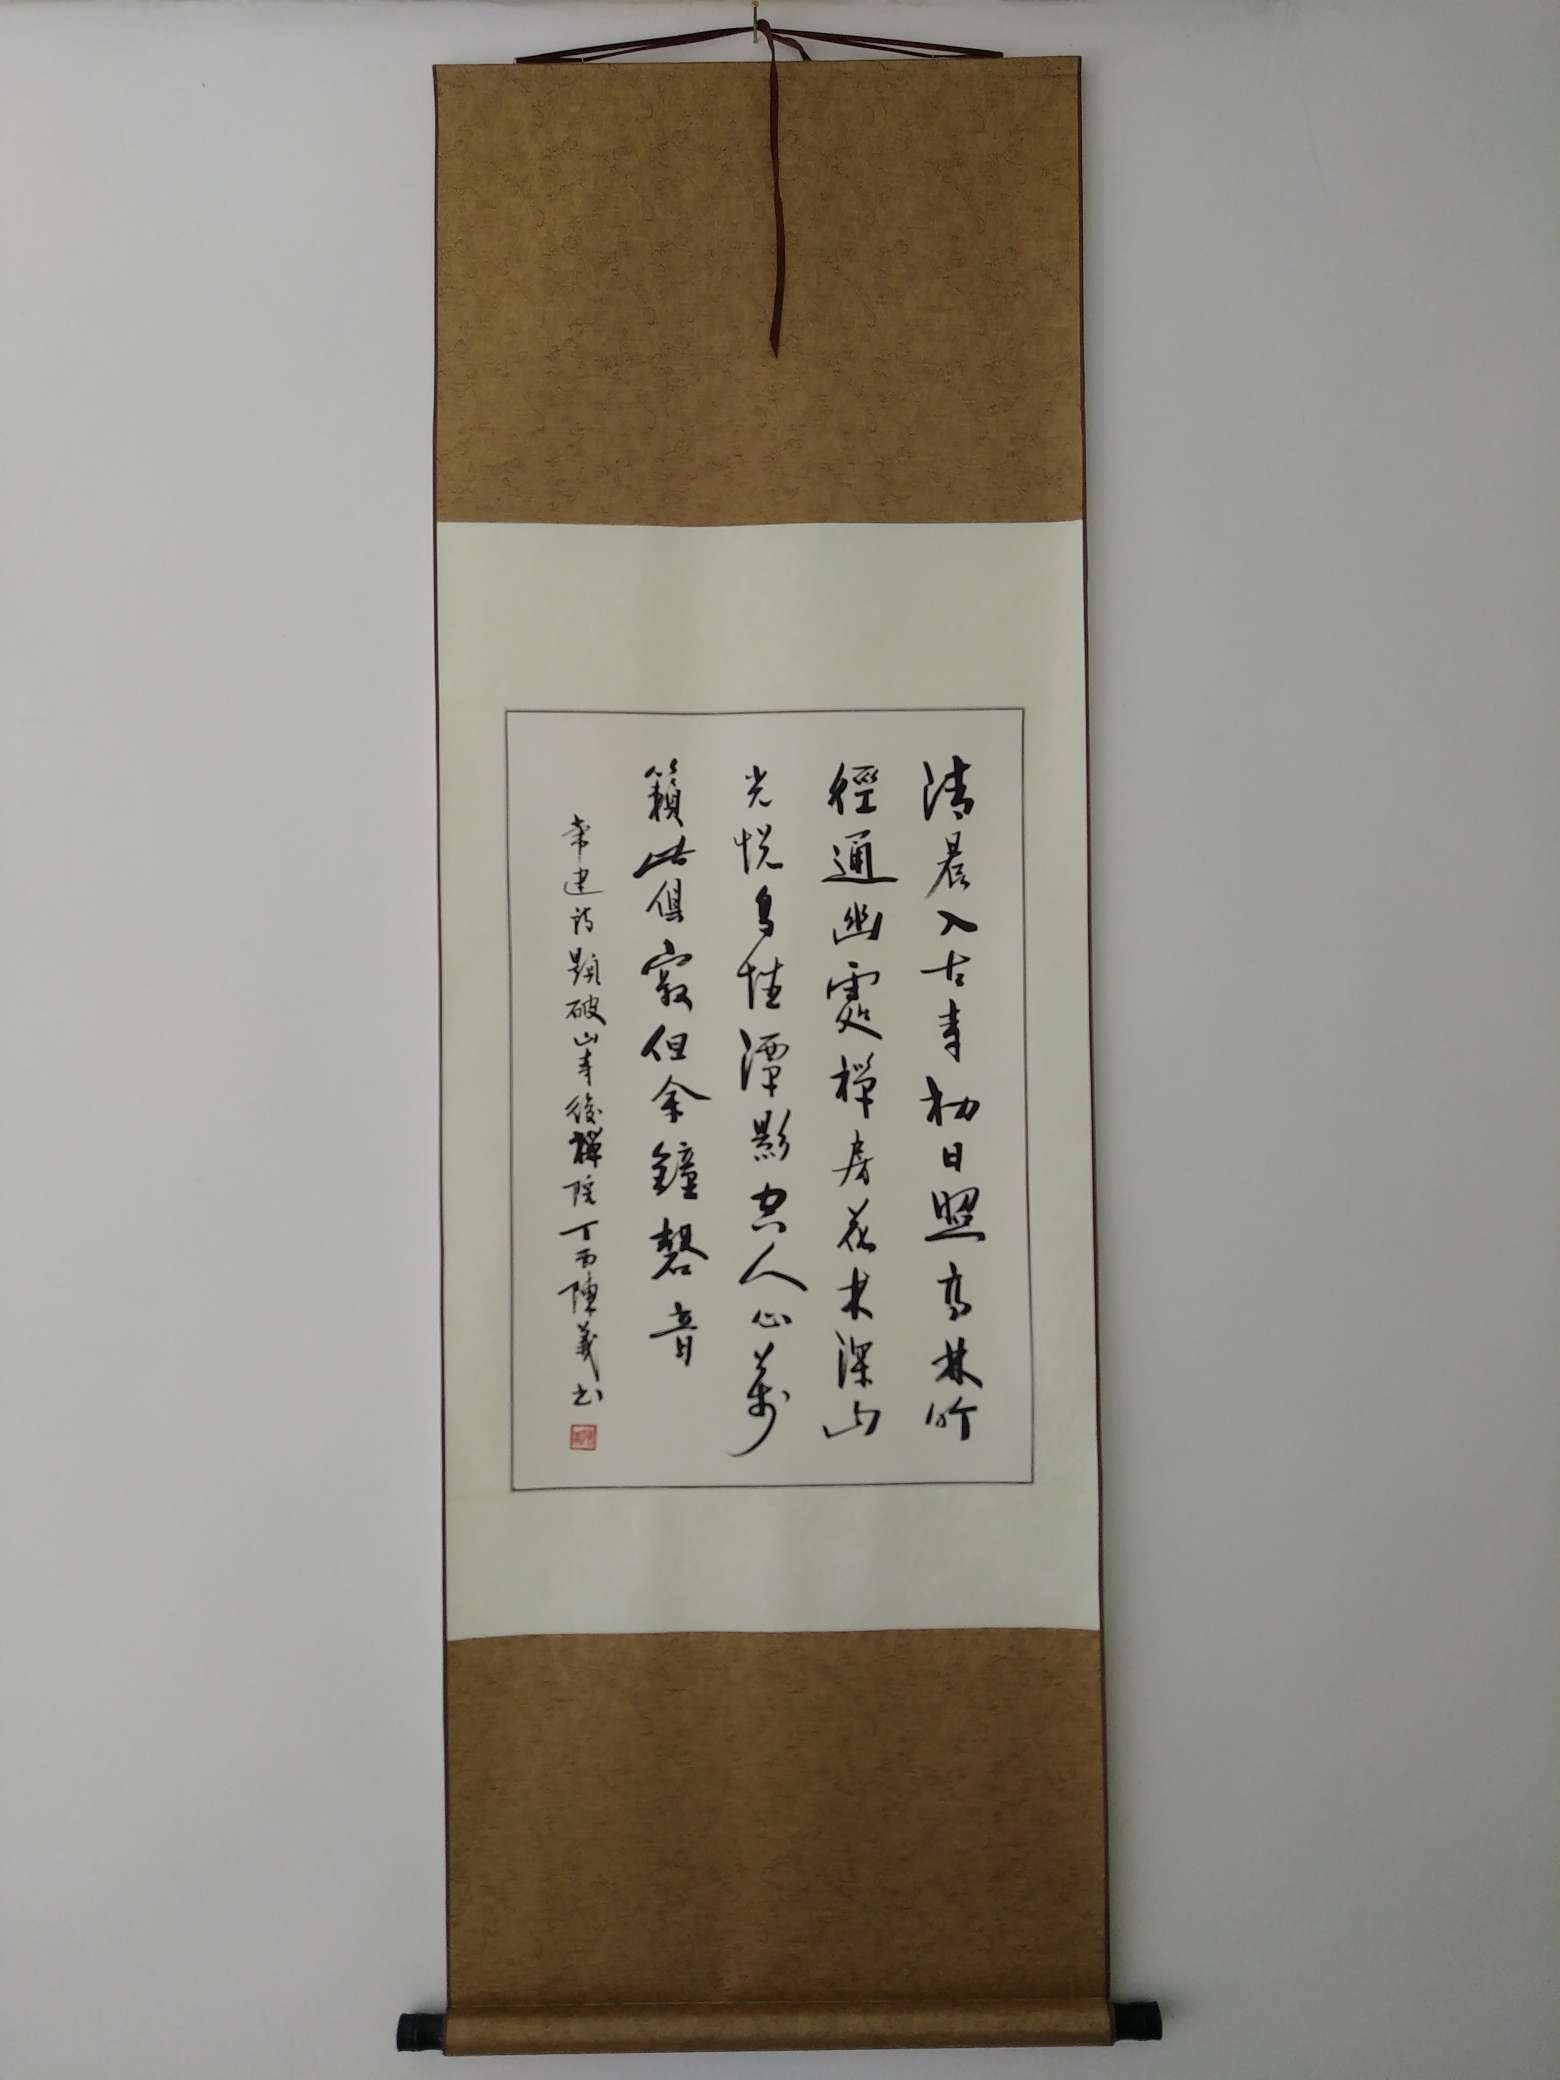 清晨入古寺初日照高林竹
徑通幽處禪房花木深山
光悦鳥性潭影空人心萬
籟此俱寂但余鐘磬音
常建詩題破山寺後禪院丁酉陳義书